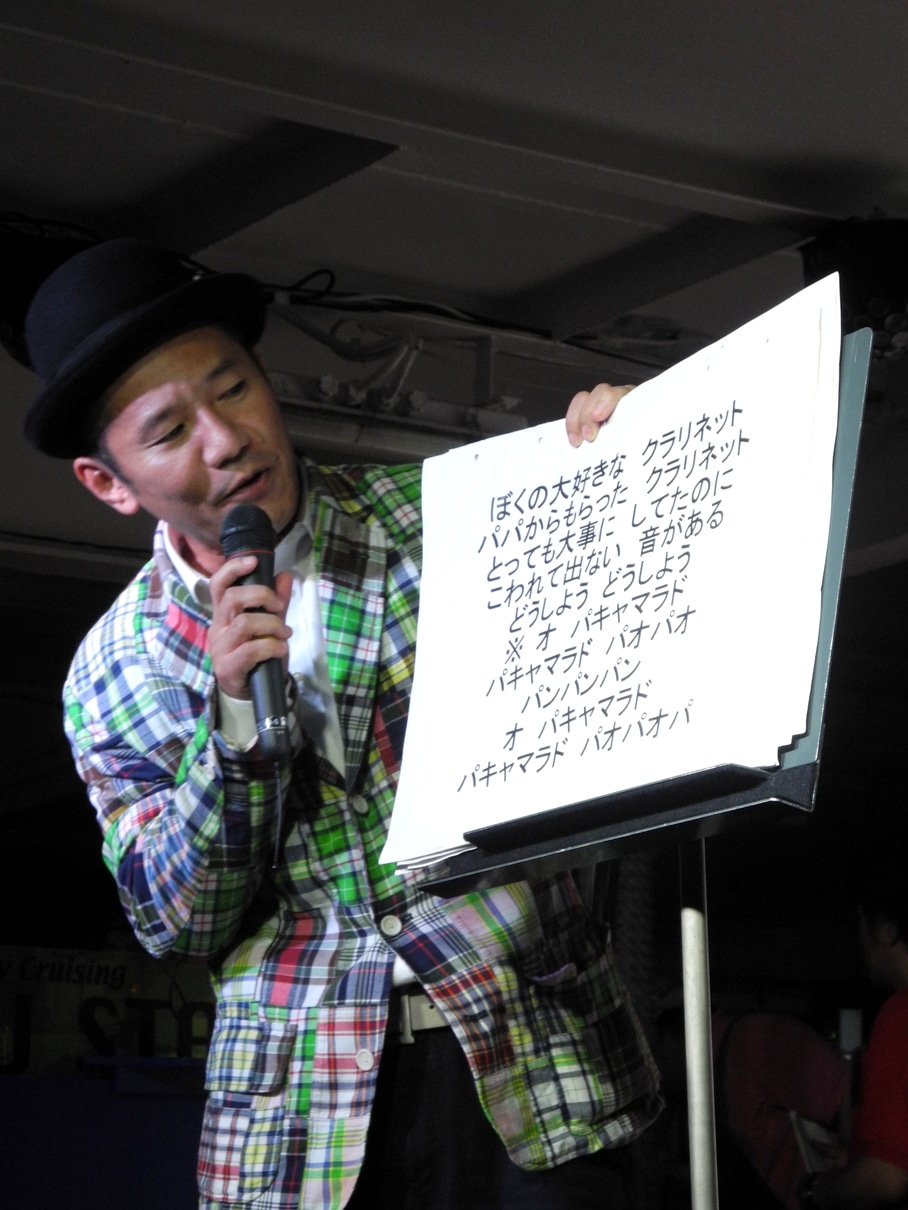 ぼくの大好きな クラリネット
パパからもらった クラリネット
とっても大事に してたのに
こわれて出ない 音がある
どうしよう どうしよう
※ オ パキャマラド
パキャマラド パオパオ
パンパンパン
オ パキャマラド
パキャマラド パオパオパ
Cruising